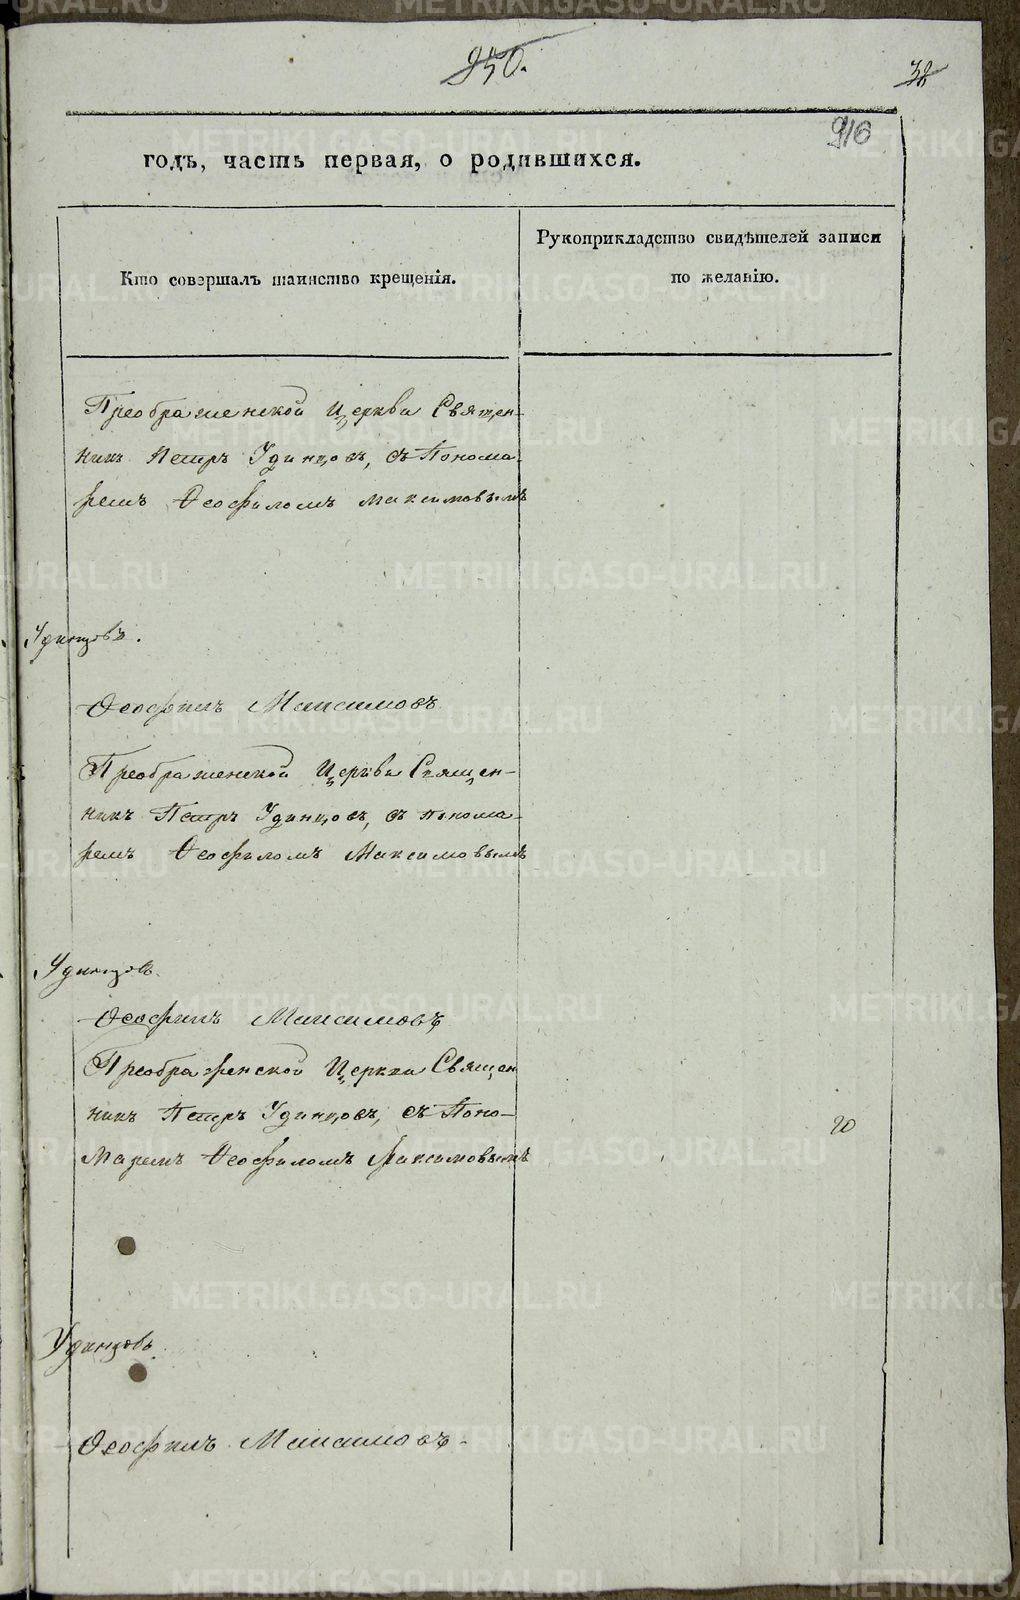 950.
38
916
годъ, часть первая, о родившихся.
Кто совершалъ таинство крещенія.
Рукоприкладство свидѣтелей записи
по желанію.
Преображенской Церкви Священ-
никъ Петръ Удинцовъ, съ Понома-
ремъ Ѳеофиломъ Максимовымъ
Удинцовъ.
Ѳеофилъ Максимовъ
Преображенской Церкви Священ-
никъ Петръ Удинцовъ, съ понома-
ремъ Ѳеофиломъ Максимовымъ
Удинцовъ.
Ѳеофилъ Максимовъ
Преображенской Церкви Священ
никъ Петръ Удинцовъ, съ Поно-
маремъ Ѳеофиломъ Максимовымъ
20
Удинцовъ.
Ѳеофилъ Максимовъ.
METRIKI.GASO-URAL.RU